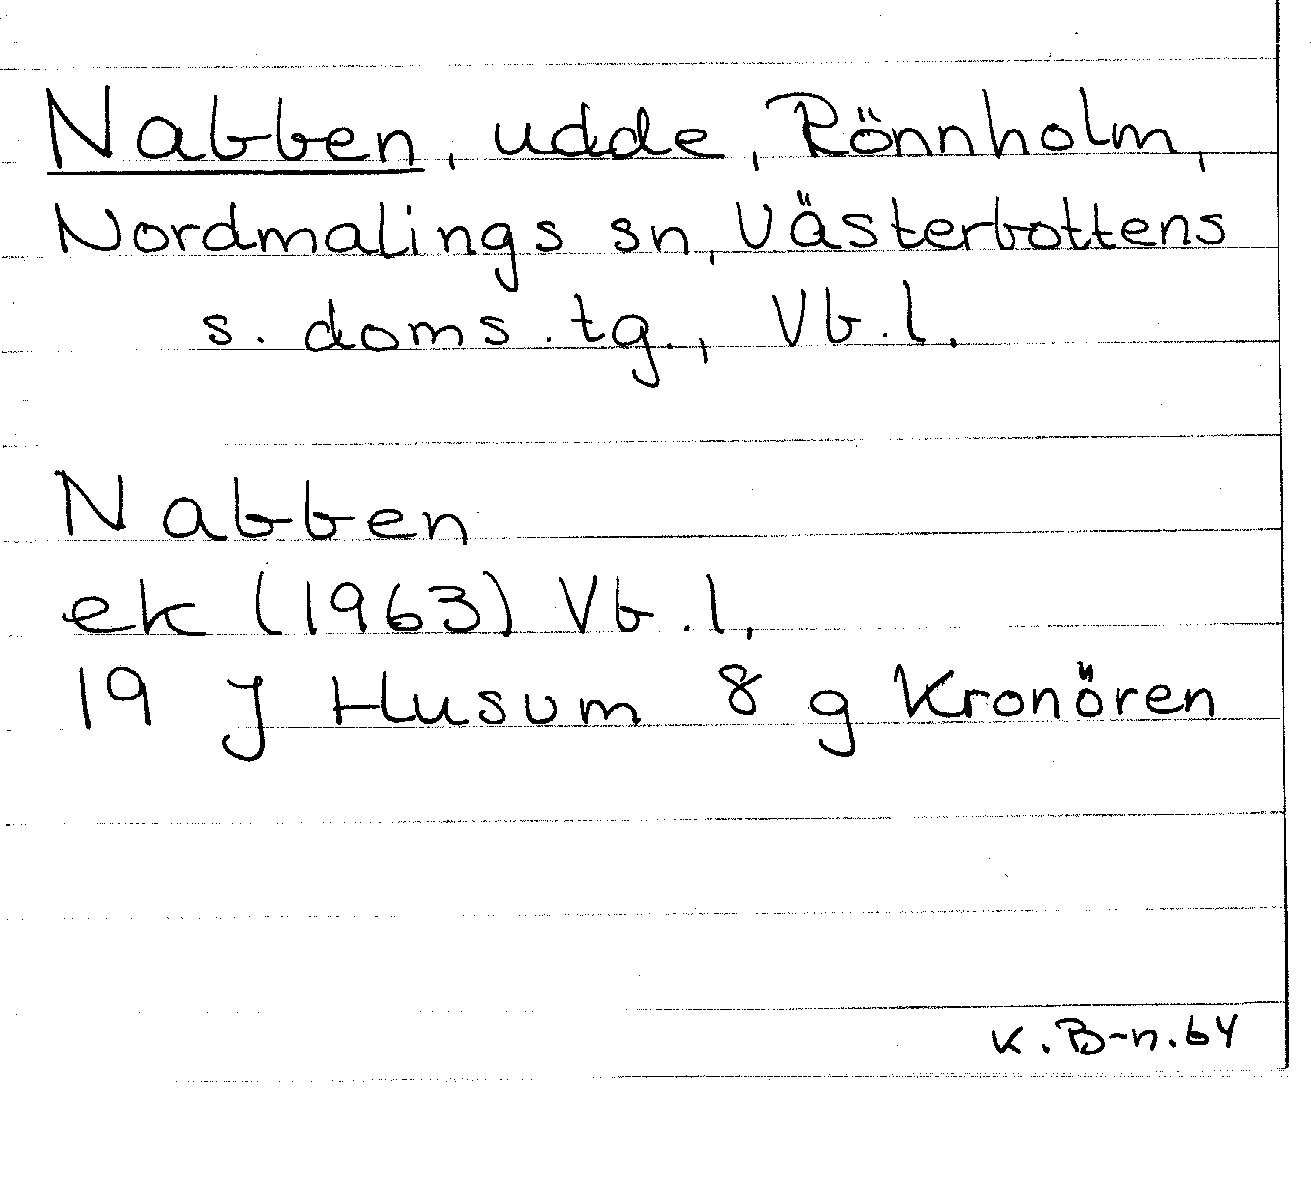 Nabben, udde, Rönnholm,
Nordmalings sn, Västerbottens
s. doms. tg., Vb. l.
Nabben
ek (1963) Vb. l.
19 J Husum 8 g Kronören
K. B-n. 64